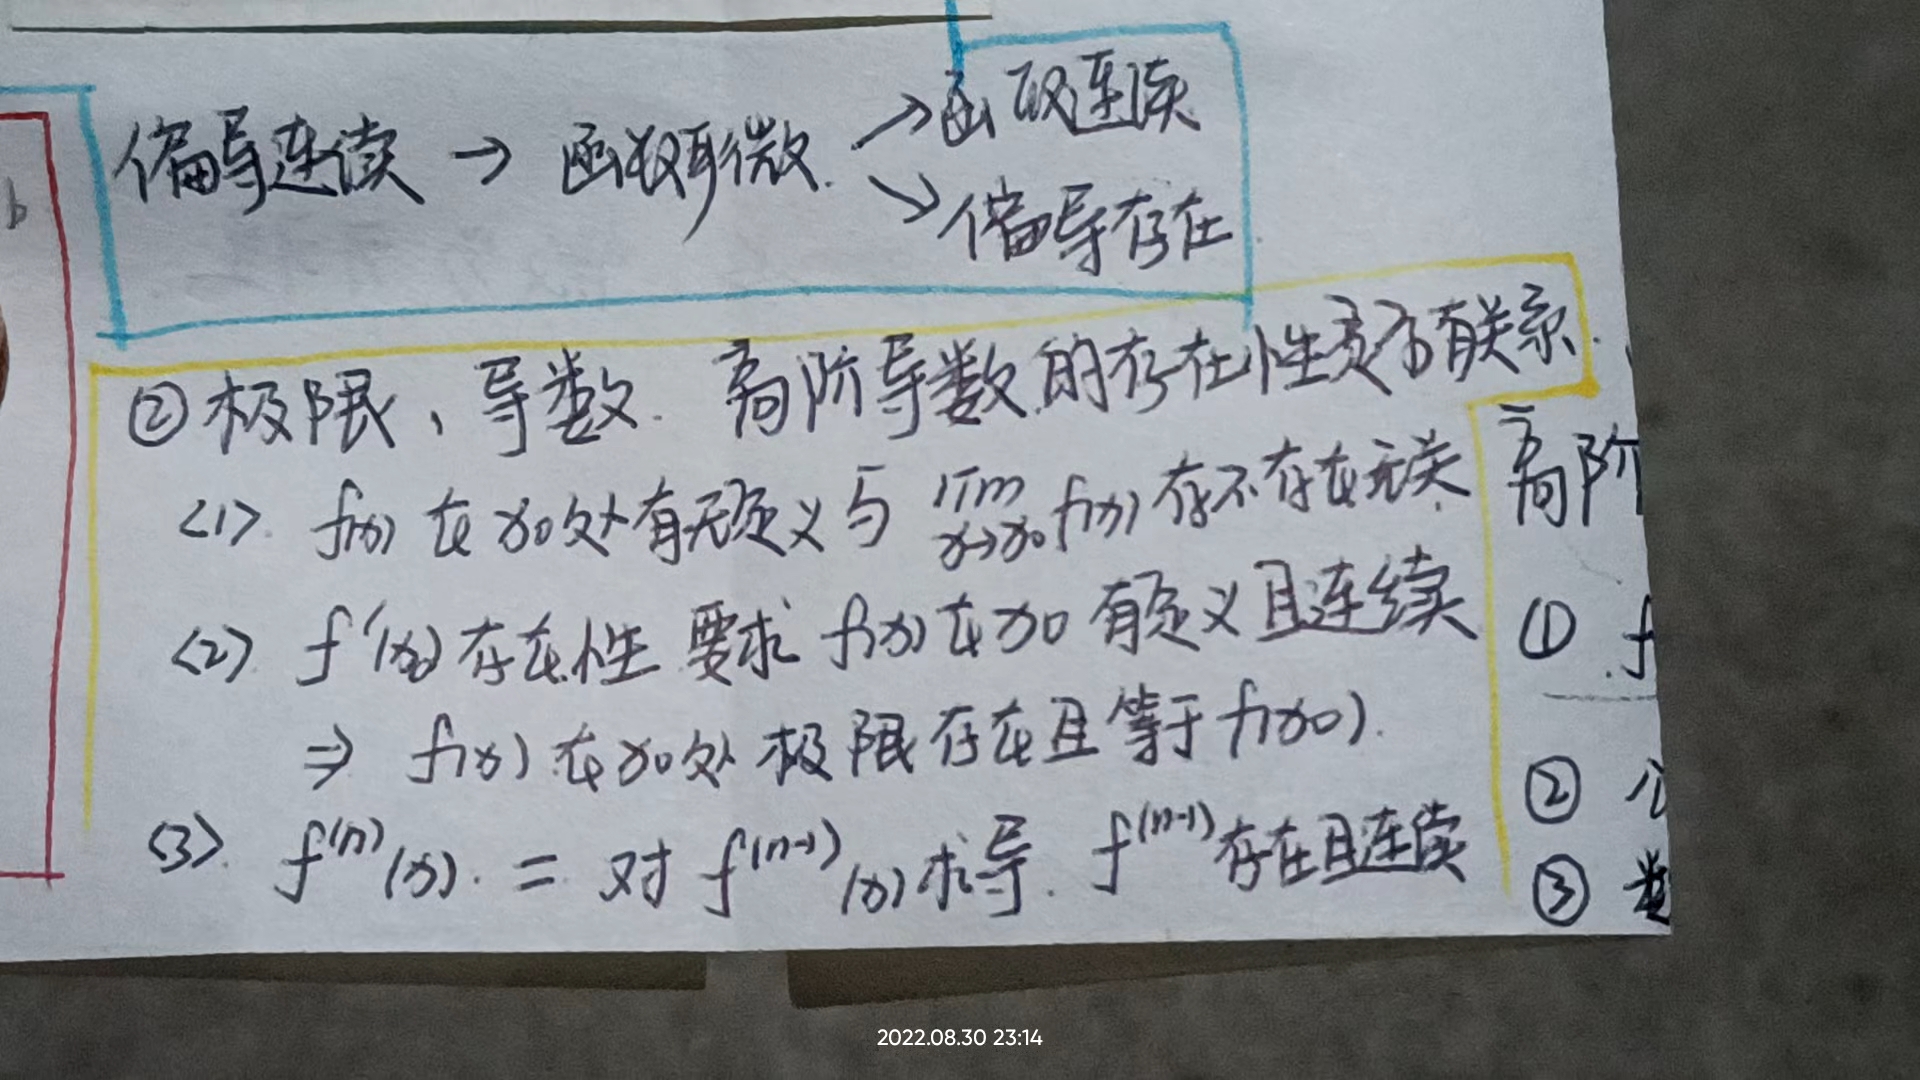 偏导连续 → 函数可微 ↗ 函数连续
↘ 偏导存在
② 极限、导数. 高阶导数的存在性是否有关系.
<1>. f(x) 在x0处有无定义与 lim x→x0 f(x) 存不存在无关.
<2>. f'(x0) 存在性 要求 f(x)在x0 有定义且连续
⇒ f(x) 在x0处 极限存在且等于f(x0).
<3>. f^(n)(x). = 对 f^(n-1)(x) 求导. f^(n-1) 存在且连续
高阶
① f
②
③
b
2022.08.30 23:14